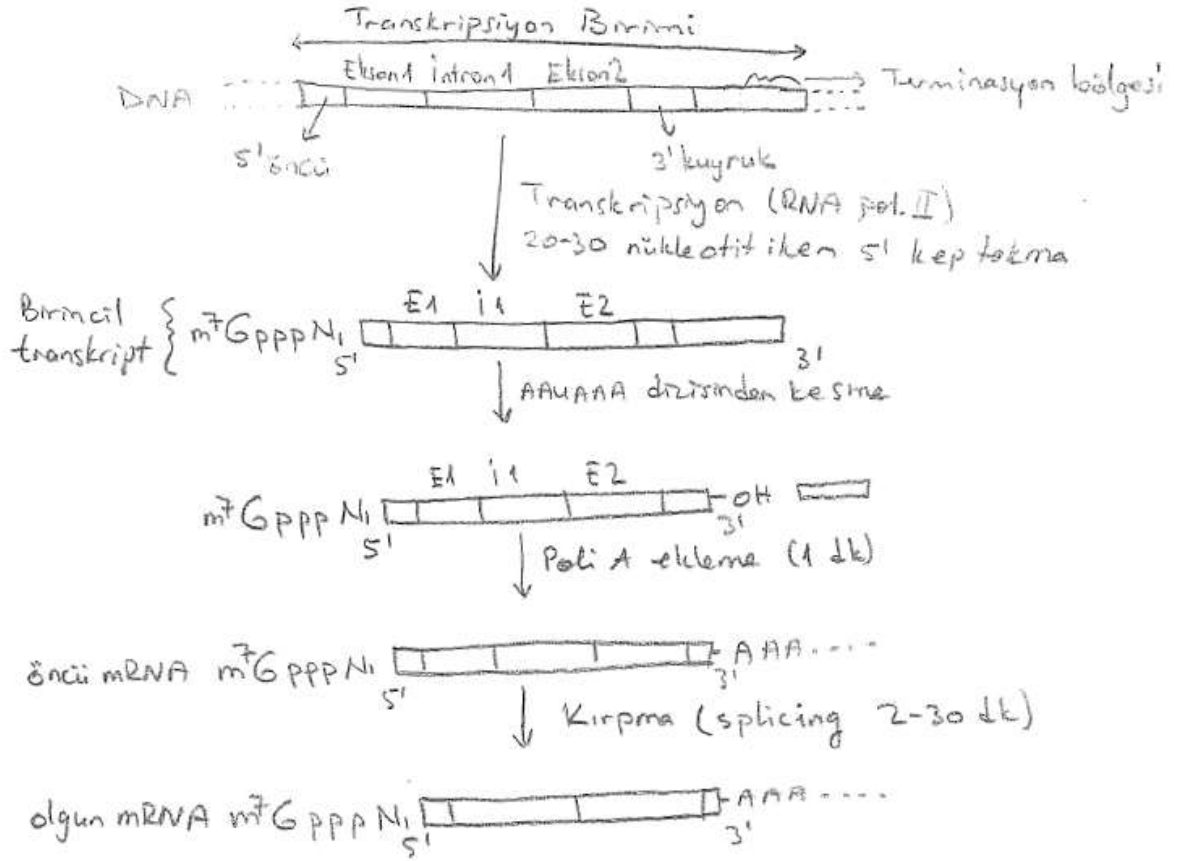 Transkripsiyon Birimi
Ekson1 İntron1 Ekson2
DNA
Terminasyon bölgesi
5' öncü
3' kuyruk
Transkripsiyon (RNA pol. II)
20-30 nükleotit iken 5' kep takma
Birincil
transkript
E1 İ1 E2
m⁷GpppN₁
5' 3'
AAUAAA dizisinden kesme
E1 İ1 E2
m⁷GpppN₁ OH
5' 3'
Poli A ekleme (1 dk)
öncü mRNA m⁷GpppN₁ AAA....
5' 3'
Kırpma (splicing 2-30 dk)
olgun mRNA m⁷GpppN₁ AAA....
5' 3'